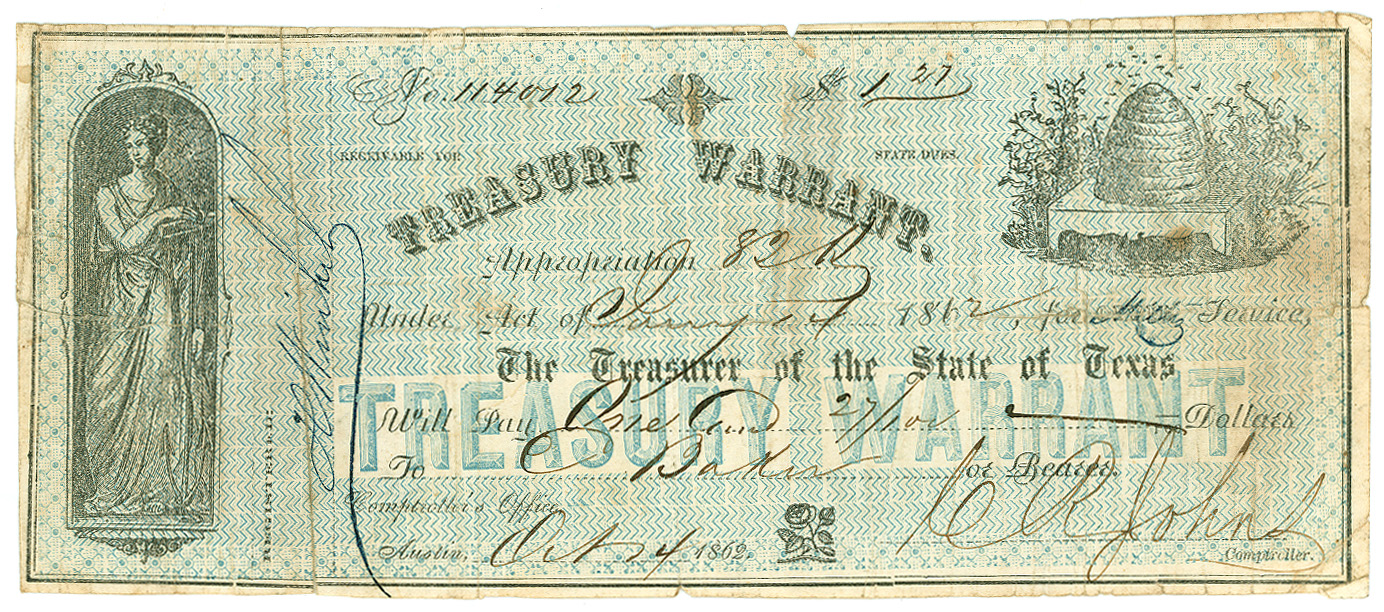 No. 114012 $ 1 27
RECEIVABLE FOR STATE DUES.
TREASURY WARRANT.
Appropriation 82
Under Act of 1862, for Service,
The Treasurer of the State of Texas
TREASURY WARRANT
Will Pay One and 27/100 Dollars
To or Bearer.
Comptroller's Office
Austin, Oct 4 1862
C R Johns
Comptroller.
REGISTERED: